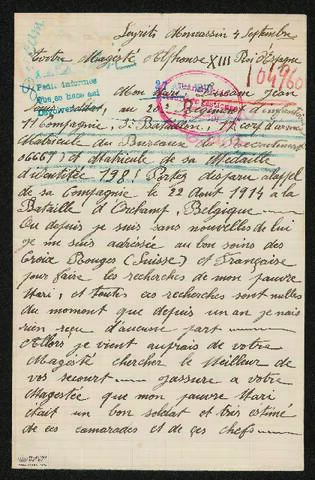 Loyrits Monassin 4 Septembre
Votre Majésté Alphonse XIII Roi d'Espagne
104960
Pedir informes
Mon Mari, Jean
soldat, au 202 Régiment d'infanterie
11 Compagnie, 3e Bataillon, 17 corps d'armée
Matricule du Bureaux de Recrutement
06667 et Matricule de sa Médaille
d'identitée 198. Portés disparu alapel
de sa Compagnie le 22 Aout 1914 à la
Bataille d'Ochamp, Belgique
Ou depuis je suis sans nouvelles de lui
je me suis adréssée au bon soins des
Croix Rouges (Suisse) et Française
pour faire les recherches de mon pauvre
Mari, et toutes ces recherches sont nulles
du moment que depuis un an je n'ais
rien reçu d'aucune part
Allors je vient auprais de votre
Magésté chercher le Meilleur de
vos secourt jassure a votre
Magestée que mon pauvre Mari
était un bon soldat et tres estimé
de ces camarades et de ces chefs